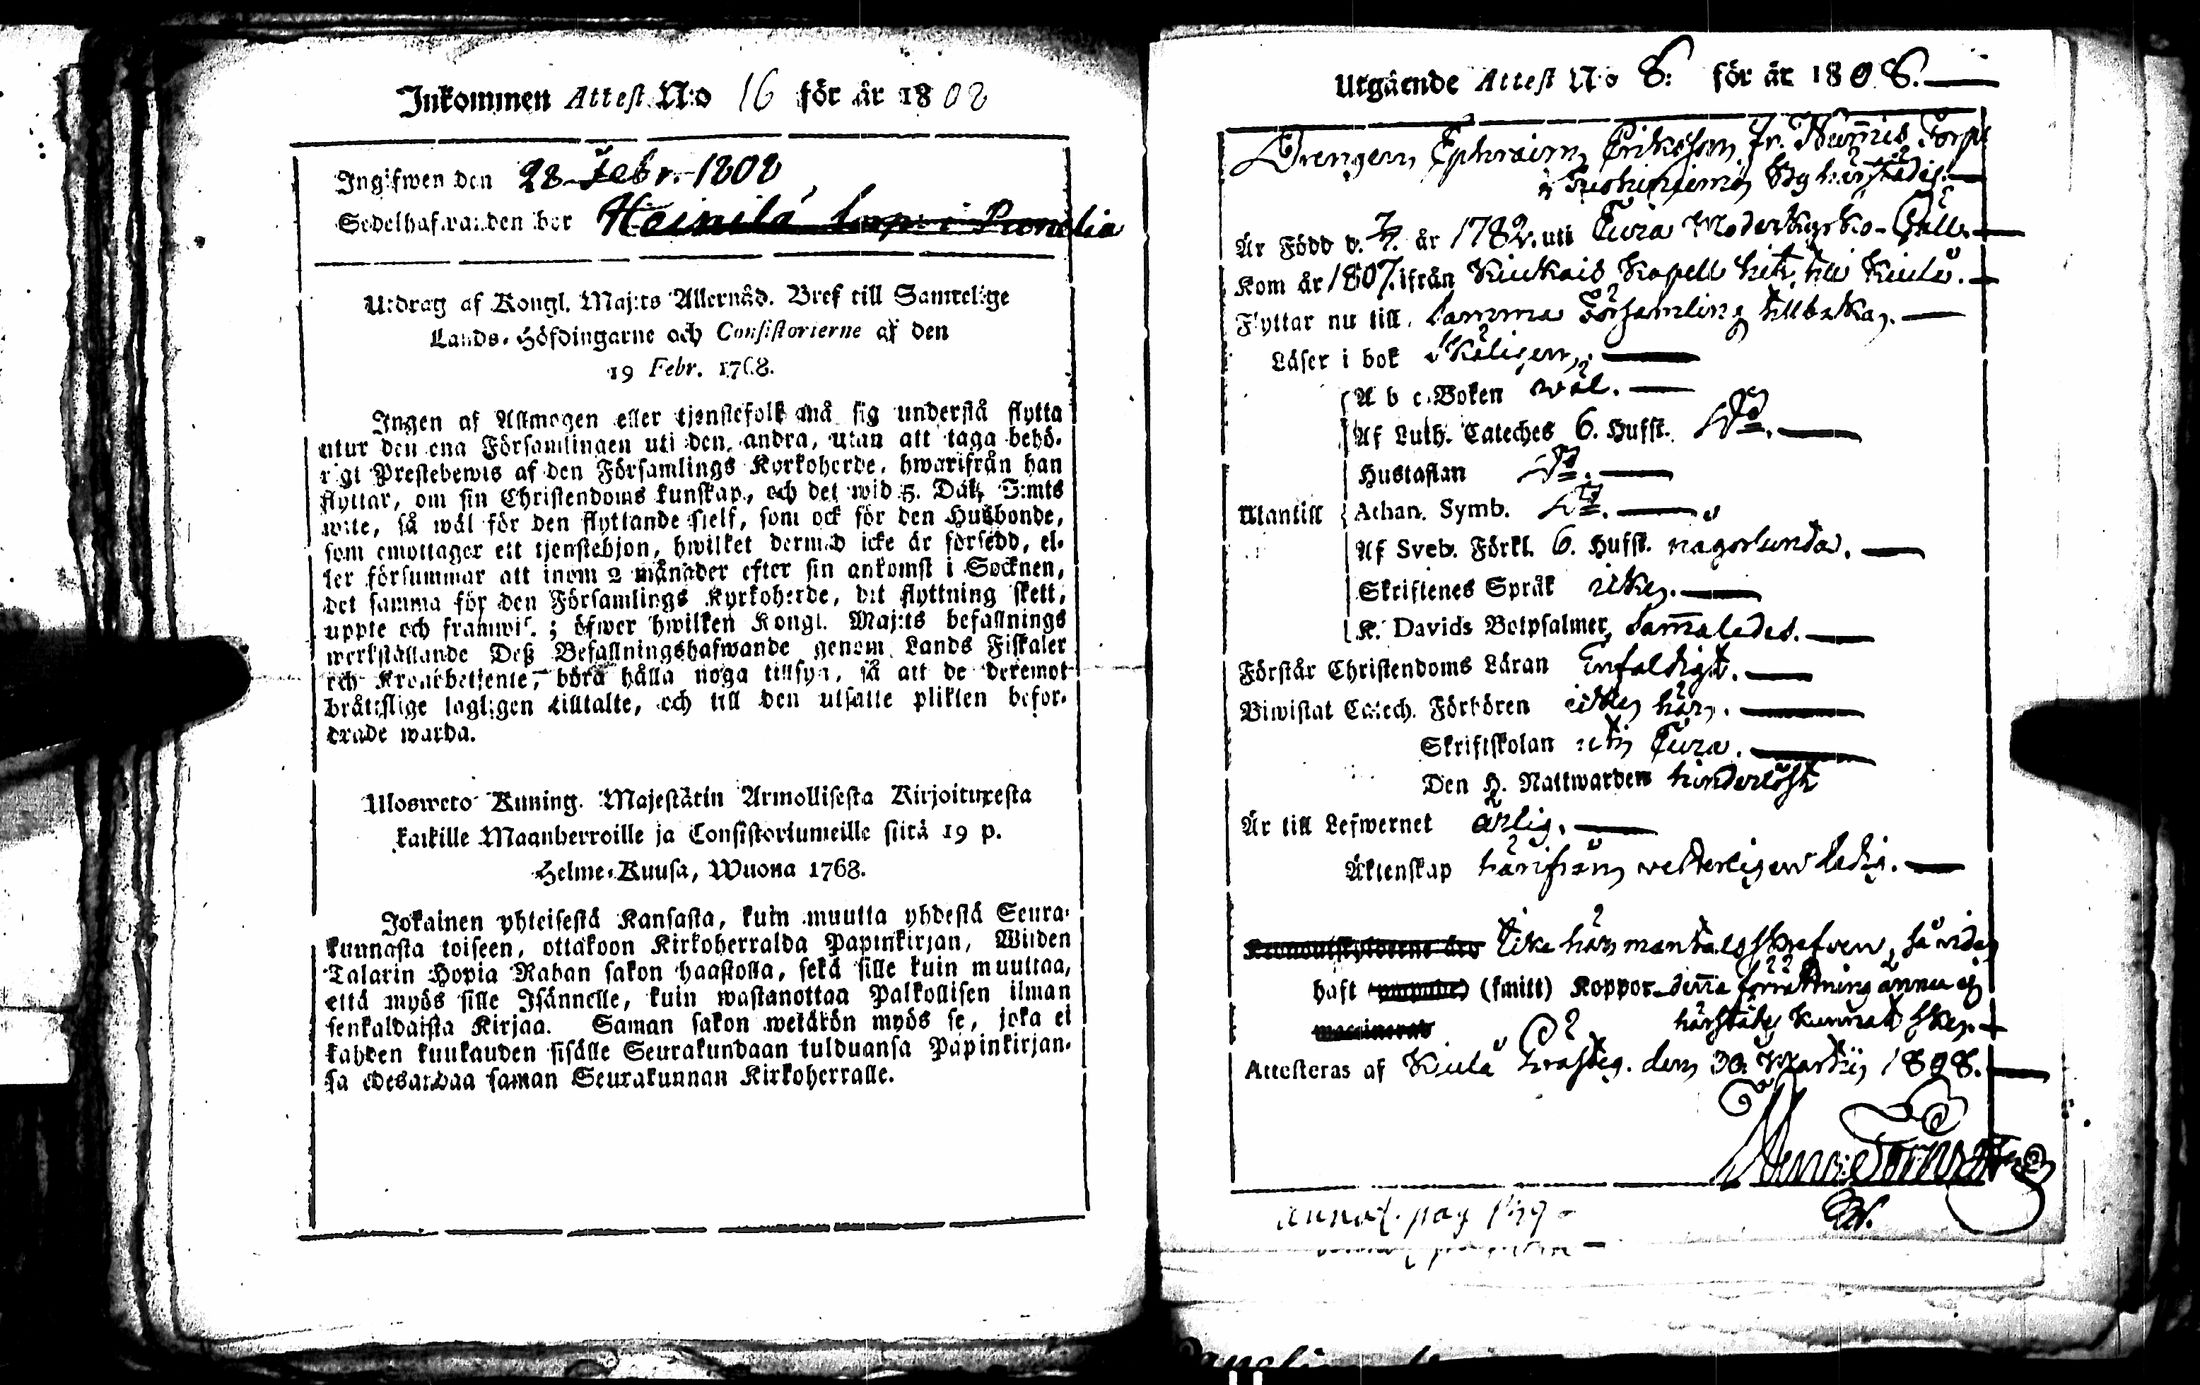 Inkommen Attest N:o 16 för år 1808
Ingifwen den 28 Febr. 1808
Sedelhafwanden bor Heinilä
Utdrag af Kongl. Maj:ts Allernåd. Bref till Samtelige
Lands-Höfdingarne och Consistorierne af den
19 Febr. 1768.
Ingen af Allmogen eller tjenstefolk må sig understå flytta
utur den ena Församlingen uti den andra, utan att taga behö-
rigt Prestebewis af den Församlings Kyrkoherde, hwarifrån han
flyttar, om sin Christendoms kunskap, och det wid 5. Dal. S:mts
wite, så wäl för den flyttande sjelf, som ock för den Husbonde,
som emottager ett tjenstehjon, hwilket dermed icke är försedd, el-
ler försummar att inom 2 månader efter sin ankomst i Socknen,
det samma för den Församlings Kyrkoherde, dit flyttning skett,
uppte och framwis. ; öfwer hwilken Kongl. Maj:ts befallnings
werkställande Deß Befallningshafwande genom Lands Fiskaler
och Kronobetjente, böra hålla noga tillsyn, så att de deremot
bråtslige lagligen tilltalte, och till den utsatte plikten befor-
drade warda.
Ulosweto Kuning. Majestätin Armollisesta Kirjoituxesta
kaikille Maanherroille ja Consistoriumeille siitä 19 p.
Helme-Kuusa, Wuona 1768.
Jokainen yhteisestä Kansasta, kuin muutta yhdestä Seura-
kunnasta toiseen, ottakoon Kirkoherralda Papinkirjan, Wiiden
Talarin Hopia Rahan sakon haastolla, sekä sille kuin muuttaa,
että myös sille Isännelle, kuin wastanottaa Palkollisen ilman
senkaldaista Kirjaa. Saman sakon wetäkön myös se, joka ei
kahden kuukauden sisälle Seurakundaan tulduansa Papinkirjan-
sa edesanna saman Seurakunnan Kirkoherralle.
Utgående Attest N:o 8: för år 1808.
Drengen Ephraim Eriksson fr. Nummis Torp
By härstädes
Är Född d. 7/7. år 1782. uti Eura Moderkyrko-Gäll.
Kom år 1807. ifrån Kiukais Kapell hit till Kiulo.
Flyttar nu till samma Församling tillbaka.
Läser i bok skäligen,
A b c Boken wäl.
Af Luth. Cateches 6. Hufst. D:o
Hustaflan D:o
Utantill Athan. Symb. D:o
Af Sveb. Förkl. 6. Hufst. någorlunda.
Skriftenes Språk icke.
K. Davids Botpsalmer sammaledes.
Förstår Christendoms Läran enfaldigt.
Biwistat Catech. Förhören icke här.
Skriftskolan uti Eura.
Den H. Nattwarden hinderlöst
Är till Lefwernet ärlig.
Äktenskap härifrån weterligen ledig.
Eike här mantalsskrefwen, så wida
haft (smitt) Koppor denna förrättning ännu ej
härstädes kunnat ske.
Attesteras af Kiulo Prästg. den 30. Martii 1808.
annot. pag